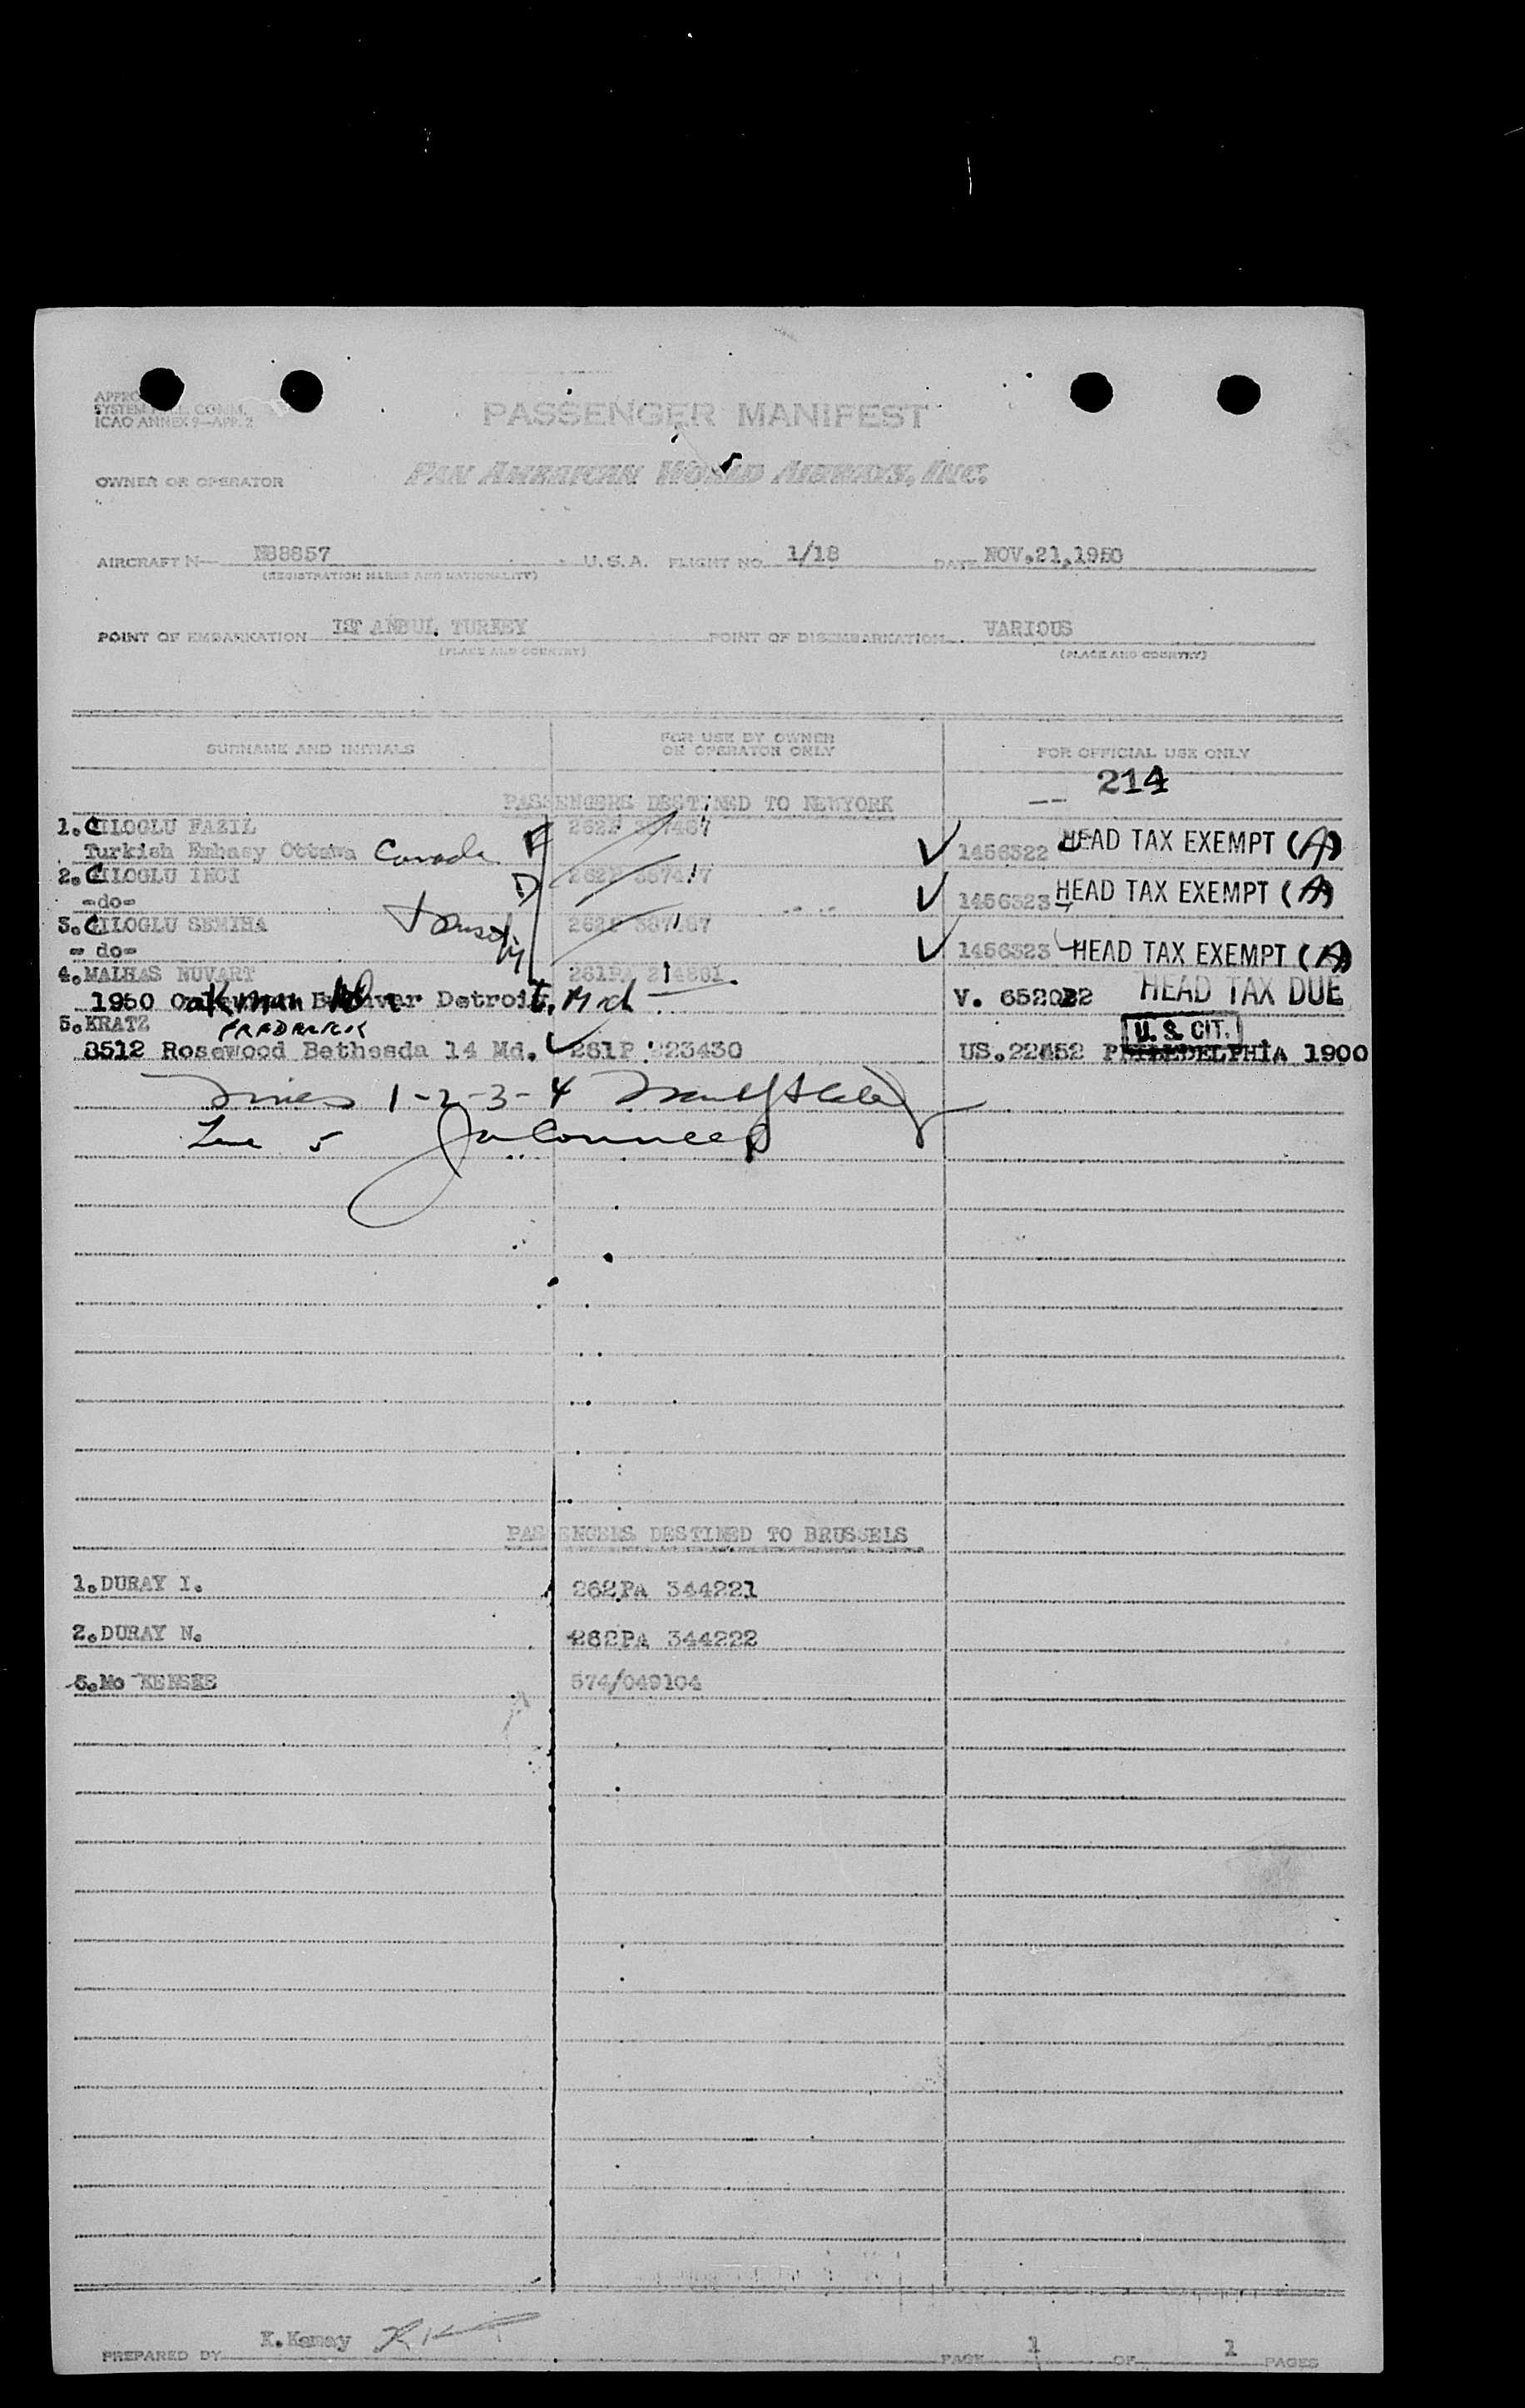 SYSTEM
ICAO ANNEX 9—APP. 2
PASSENGER MANIFEST
OWNER OR OPERATOR
PAN AMERICAN WORLD AIRWAYS, INC.
AIRCRAFT N— N88857 U.S.A. FLIGHT NO. 1/18 DATE NOV.21,1950
(REGISTRATION MARKS AND NATIONALITY)
POINT OF EMBARKATION IST ANBUL TURKEY POINT OF DISEMBARKATION VARIOUS
(PLACE AND COUNTRY) (PLACE AND COUNTRY)
SURNAME AND INITIALS FOR USE BY OWNER OR OPERATOR ONLY FOR OFFICIAL USE ONLY
214
PASSENGERS DESTINED TO NEWYORK
1. CILOGLU FAZIL HEAD TAX EXEMPT (A)
Turkish Embasy Ottawa Canada 1456322
2. CILOGLU INCI HEAD TAX EXEMPT (A)
-do- 1456323
3. CILOGLU SEMIHA
- do- 1456323 HEAD TAX EXEMPT (A)
4. MALHAS NUVART HEAD TAX DUE
1950 Detroit, Mich V.
5. KRATZ FREDERICK U. S. CIT.
8512 Rosewood Bethesda 14 Md. 261P 323430 PHILEDELPHIA 1900
Lines 1-2-3-4
Line 5
PASSENGERS DESTINED TO BRUSSELS
1. DURAY I. 262PA 344221
2. DURAY N. 262PA 344222
574/049104
PREPARED BY PAGE 1 OF 1 PAGES